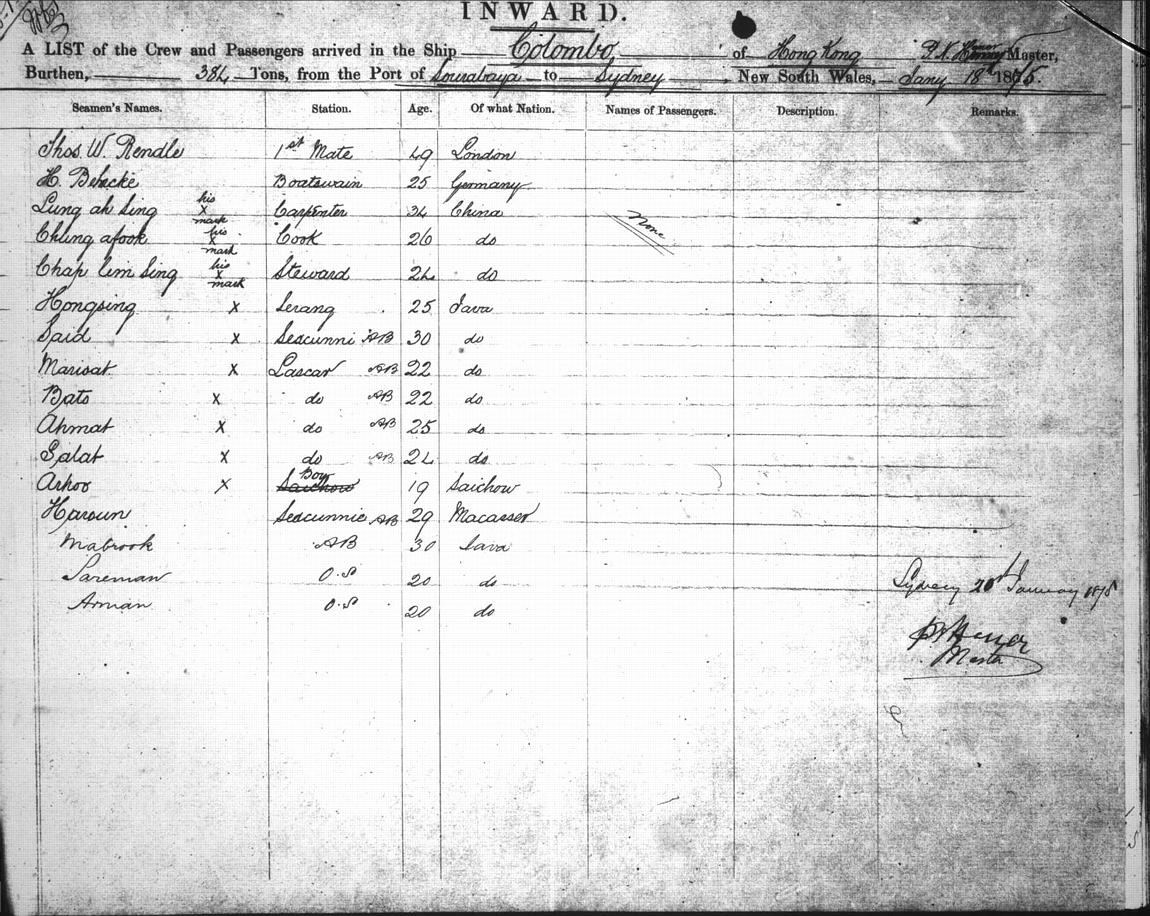 INWARD.
A LIST of the Crew and Passengers arrived in the Ship Colombo of Hong Kong Master,
Burthen, 384 Tons, from the Port of Sourabaya to Sydney, New South Wales, Jany 18th 1875.
Seamen's Names. Station. Age. Of what Nation. Names of Passengers. Description. Remarks.
Thos. W. Rendle 1st Mate 49 London
H. Behncke Boatswain 25 Germany
Lung ah Sing his x mark Carpenter 34 China
Chling afook his x mark Cook 26 do
None
Chap lim Sing his x mark Steward 24 do
Hongsing x Serang 25 Java
Said x Seacunni AB 30 do
Marisat x Lascar AB 22 do
Bato x do AB 22 do
Ahmat x do AB 25 do
Salat x do AB 24 do
Arhoo x Saichow Boy 19 Saichow
Haroun Seacunnie AB 29 Macasser
Mabrook AB 30 Java
Sareman O.S 20 do
Arman O.S 20 do
Sydney 20th January 1875
Master